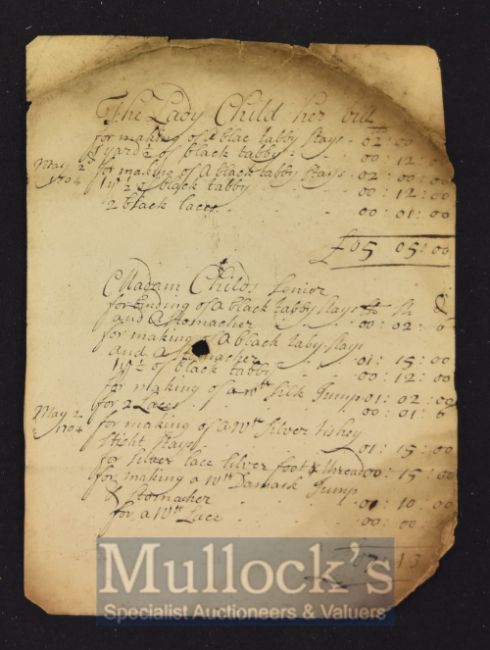 The Lady Child her bill
for making of a blac tabby stays - 02 : 00
1 yard ½ of black tabby : 00 : 12
May 2d for making of a black tabby stays - 02 : 00 : 00
1704 1yd ½ of black tabby 00 : 12 : 00
2 black laces . . 00 : 01 : 00
£05 05 : 00
Madam Childs Senior
for binding of a black tabby stays
and a stomacher . . . 00 : 02 : 6
for making of a black taby stays
and a stomacher 01 : 15 : 00
1yd ½ of black tabby 00 : 12 : 00
for making of a wtt silk Jump 01 : 02 : 00
May 2 for 2 Laces . . 00 : 01 : 6
1704 for making of a wtt silver tishey
stays 01 : 15 : 00
for silver lace silver foot & thread 00 : 15 : 00
for making a wtt Damask Jump
& stomacher 01 : 10 : 00
for a wtt Lace . . 00 : 00
07 : 13
Mullock's
Specialist Auctioneers & Valuers